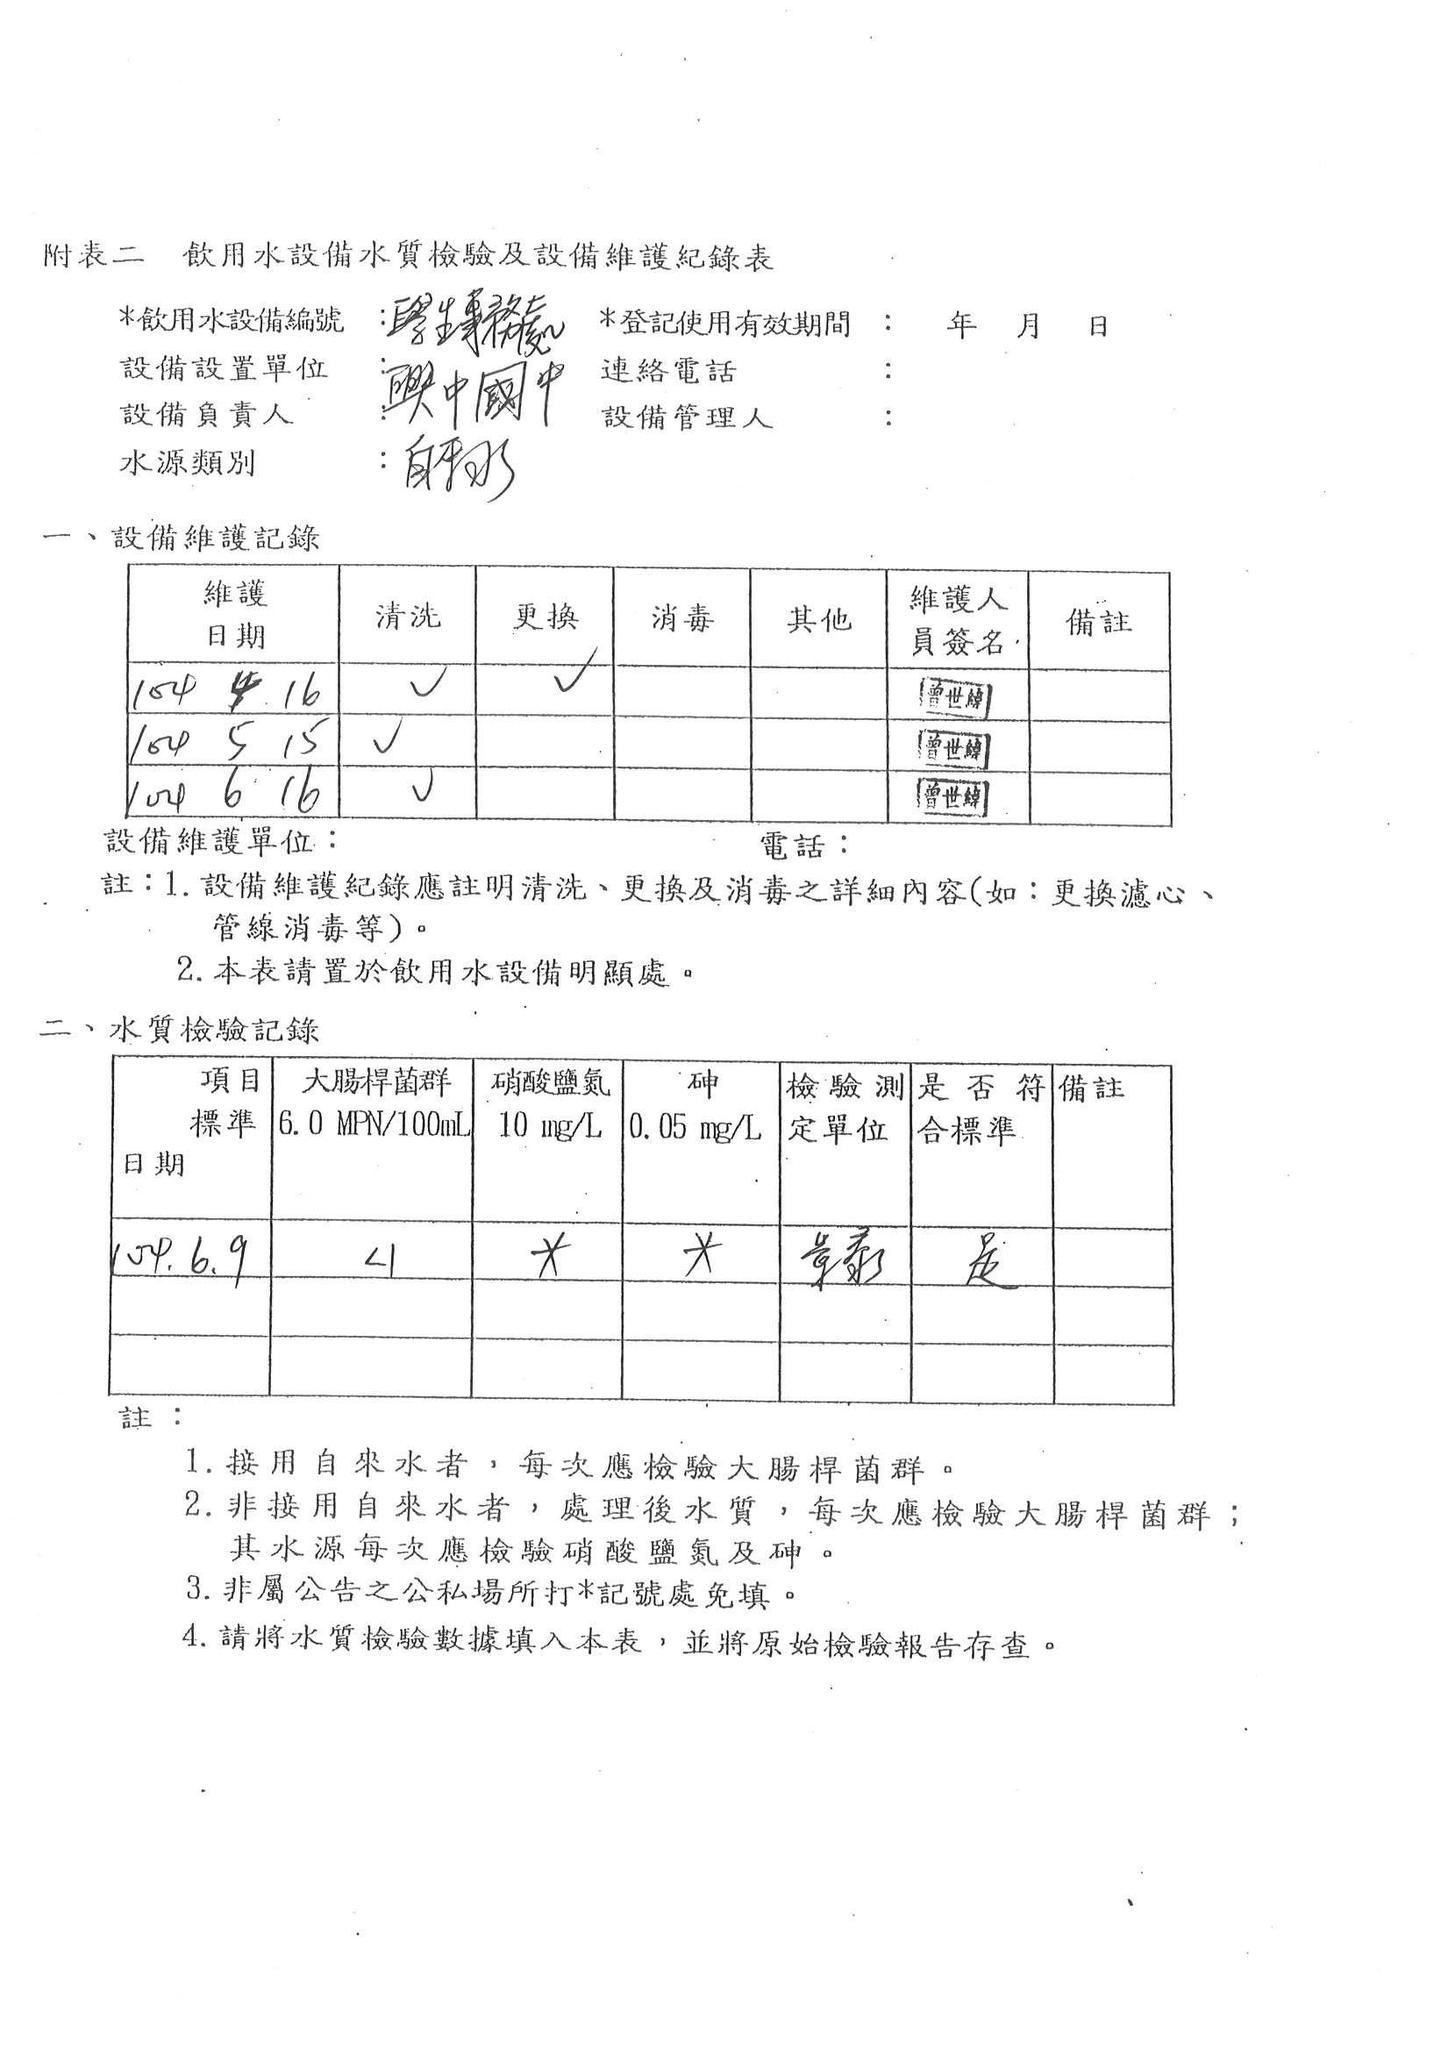 附表二 飲用水設備水質檢驗及設備維護紀錄表
*飲用水設備編號 :學生事務處 *登記使用有效期間 : 年 月 日
設備設置單位 :興中國中 連絡電話 :
設備負責人 : 設備管理人 :
水源類別 :自來水
一、設備維護記錄
維護日期 清洗 更換 消毒 其他 維護人員簽名 備註
104 4 16 ✓ ✓ 曾世緯
104 5 15 ✓ 曾世緯
104 6 16 ✓ 曾世緯
設備維護單位: 電話:
註:1.設備維護紀錄應註明清洗、更換及消毒之詳細內容(如:更換濾心、
管線消毒等)。
2.本表請置於飲用水設備明顯處。
二、水質檢驗記錄
項目 大腸桿菌群 硝酸鹽氮 砷 檢驗測 是否符 備註
標準 6.0 MPN/100mL 10 mg/L 0.05 mg/L 定單位 合標準
日期
104.6.9 <1 * * 是
註:
1.接用自來水者,每次應檢驗大腸桿菌群。
2.非接用自來水者,處理後水質,每次應檢驗大腸桿菌群;
其水源每次應檢驗硝酸鹽氮及砷。
3.非屬公告之公私場所打*記號處免填。
4.請將水質檢驗數據填入本表,並將原始檢驗報告存查。